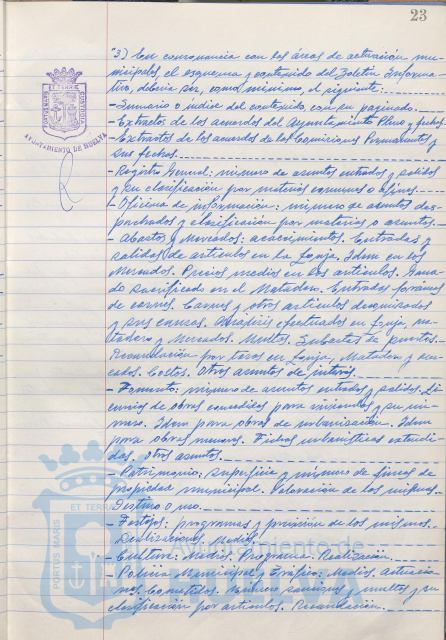 23
"3) En consonancia con las áreas de actuación mu-
nicipales, el esquema y contenido del Boletín Informa-
tivo, debería ser, como mínimo, el siguiente:
- Sumario o índice del contenido, con su paginado.
- Extractos de los acuerdos del Ayuntamiento Pleno y fechas.
- Extractos de los acuerdos de las Comisiones Permanentes y
sus fechas.
- Registro General: número de asuntos entrados y salidos
y su clasificación por materias comunes o afines.
- Oficina de información: número de asuntos des-
pachados y clasificación por materias o asuntos.
- Abastos y Mercados: acaecimientos. Entradas y
salidas de artículos en la Lonja. Idem en los
Mercados. Precios medios en los artículos. Gana-
do sacrificado en el Matadero. Entradas foráneas
de carnes. Carnes y otros artículos decomisados
y sus causas. Análisis efectuados en Lonja, ma-
tadero y Mercados. Multas. Subastas de puestos.
Recaudación por tasas en Lonja, Matadero y mer-
cados. Costes. Otros asuntos de interés.
- Fomento: número de asuntos entrados y salidos. Li-
cencias de obras concedidas para viviendas y su nú-
mero. Idem para obras de urbanización. Idem
para obras menores. Fichas urbanísticas extendi-
das, otros asuntos.
- Patrimonio: superficie y número de fincas de
propiedad municipal. Valoración de las mismas.
Destino o uso.
- Festejos: programas y previsión de los mismos.
Realizaciones. Medios.
- Cultura: Medios. Programa. Realización.
- Policía Municipal y Tráfico: Medios. Actuacio-
nes. Cometidos. Número sanciones y multas y su
clasificación por artículos. Recaudación.
AYUNTAMIENTO DE HUELVA
PORTUS MARIS ET TERRAE